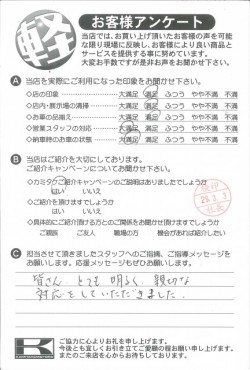 軽
お客様アンケート
当店では、お買い上げ頂いたお客様の声を可能
な限り現場に反映し、お客様により良い商品と
サービスを提供する事に努めています。
大変お手数ですが是非お声をお聞かせ下さい。
A 当店を実際にご利用になった印象をお聞かせ下さい。
◇店の印象 大満足 満足 ふつう やや不満 不満
◇店内・展示場の清掃 大満足 満足 ふつう やや不満 不満
◇お車の品揃え 大満足 満足 ふつう やや不満 不満
◇営業スタッフの対応 大満足 満足 ふつう やや不満 不満
◇納車時のお車の状態 大満足 満足 ふつう やや不満 不満
B 当店はご紹介を大切にしております。
ご紹介キャンペーンについてお聞かせ下さい
◇カミタケご紹介キャンペーンのご説明はありましたでしょうか
はい いいえ
◇ご紹介を頂けますでしょうか
はい いいえ
◇具体的にご紹介頂ける方とのご関係をお聞かせ頂けますでしょうか
ご親族 ご友人 職場の方 機会があれば紹介したい
C 担当させて頂きましたスタッフへのご指摘、ご指導メッセージを
お願いします。応援メッセージもぜひお願いします。
皆さん とても 明るく、親切な
対応をしていただきました。
K
ご協力に心よりお礼を申し上げます。
今後とも宜しくお引き立てご愛顧の程お願い申し上げます。
またのご来店を心からお待ちしております。